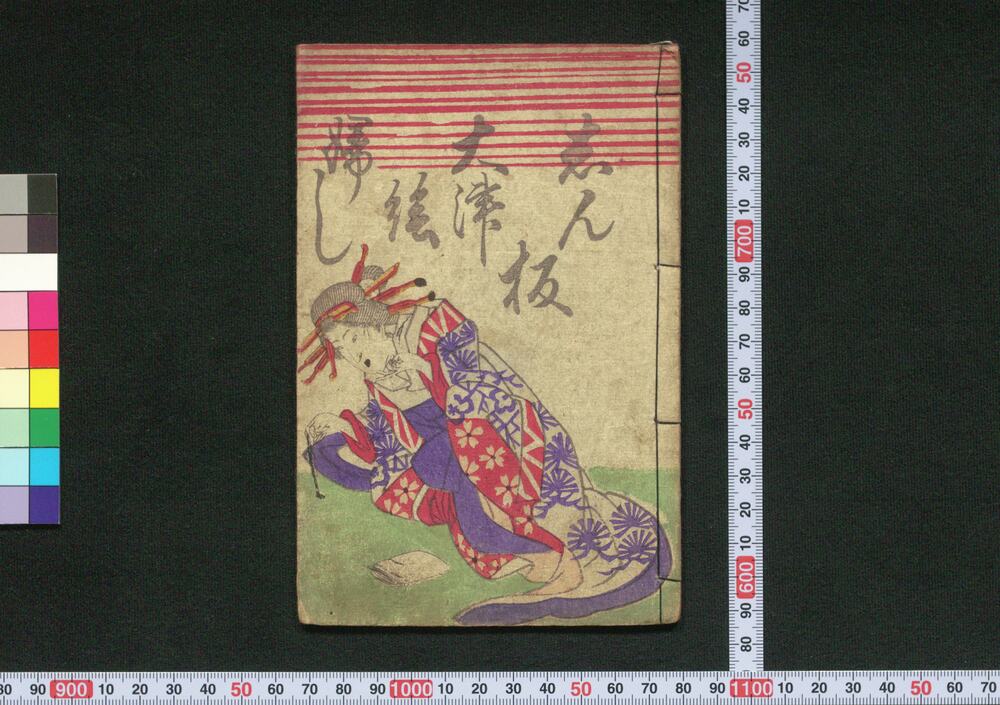 志ん板
大津絵
婦し
80 90 900 10 20 30 40 50 60 70 80 90 1000 10 20 30 40 50 60 70 80 90 1100 10 20 30 40 50 60 70
70 60 50 40 30 20 10 700 90 80 70 60 50 40 30 20 10 600 90 80